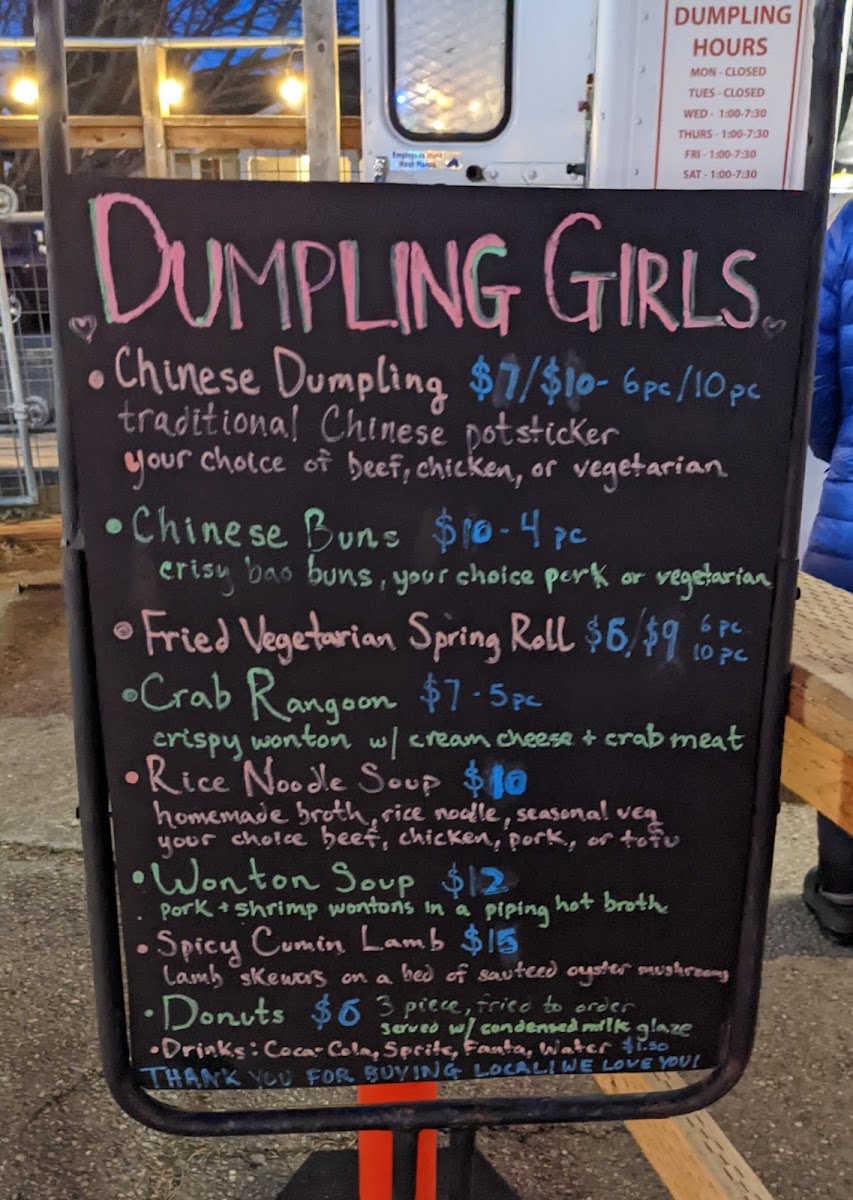 DUMPLING
HOURS
MON - CLOSED
TUES - CLOSED
WED - 1:00-7:30
THURS - 1:00-7:30
FRI - 1:00-7:30
SAT - 1:00-7:30
Employees Must
Wash Hands
DUMPLING GIRLS
• Chinese Dumpling $7/$10- 6pc/10pc
traditional Chinese potsticker
your choice of beef, chicken, or vegetarian
• Chinese Buns $10-4 pc
crisy bao buns, your choice pork or vegetarian
• Fried Vegetarian Spring Roll $6/$9 6 pc
10 pc
• Crab Rangoon $7-5pc
crispy wonton w/ cream cheese + crab meat
• Rice Noodle Soup $10
homemade broth, rice noodle, seasonal veg
your choice beef, chicken, pork, or tofu
• Wonton Soup $12
pork + shrimp wontons in a piping hot broth
• Spicy Cumin Lamb $15
lamb skewers on a bed of sauteed oyster mushrooms
• Donuts $6 3 piece, fried to order
served w/ condensed milk glaze
• Drinks: Coca-Cola, Sprite, Fanta, Water $1.50
THANK YOU FOR BUYING LOCAL! WE LOVE YOU!